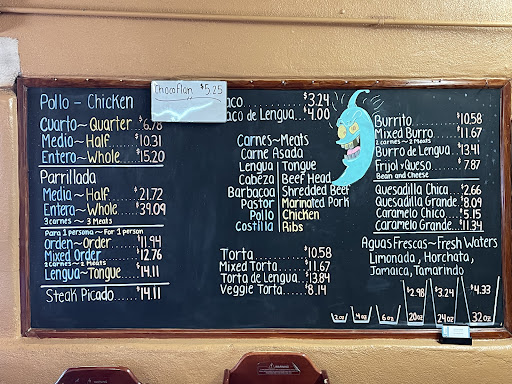 Chocoflan $5.25
Pollo - Chicken
Cuarto~Quarter $6.78
Medio~Half......$10.31
Entero~Whole....$15.20
Parrillada
Media~Half......$21.72
Entera~Whole...$39.09
3 carnes ~ 3 Meats
Para 1 persona ~ For 1 person
Orden~Order......$11.94
Mixed Order......$12.76
2 Carnes ~ 2 Meats
Lengua~Tongue....$14.11
Steak Picado......$14.11
aco..........$3.24
aco de Lengua...$4.00
Carnes~Meats
Carne Asada
Lengua Tongue
Cabeza Beef Head
Barbacoa Shredded Beef
Pastor Marinated Pork
Pollo Chicken
Costilla Ribs
Torta..........$10.58
Mixed Torta.....$11.67
Torta de Lengua..$13.84
Veggie Torta.....$8.14
Burrito..........$10.58
Mixed Burro.....$11.67
2 carnes ~ 2 Meats
Burro de Lengua..$13.41
Frijol y Queso....$7.87
Bean and Cheese
Quesadilla Chica..$2.66
Quesadilla Grande.$8.09
Caramelo Chico...$5.15
Caramelo Grande...$11.34
Aguas Frescas~Fresh Waters
Limonada, Horchata,
Jamaica, Tamarindo
$2.98 $3.24 $4.33
2oz 4oz 6oz 20oz 24oz 32oz